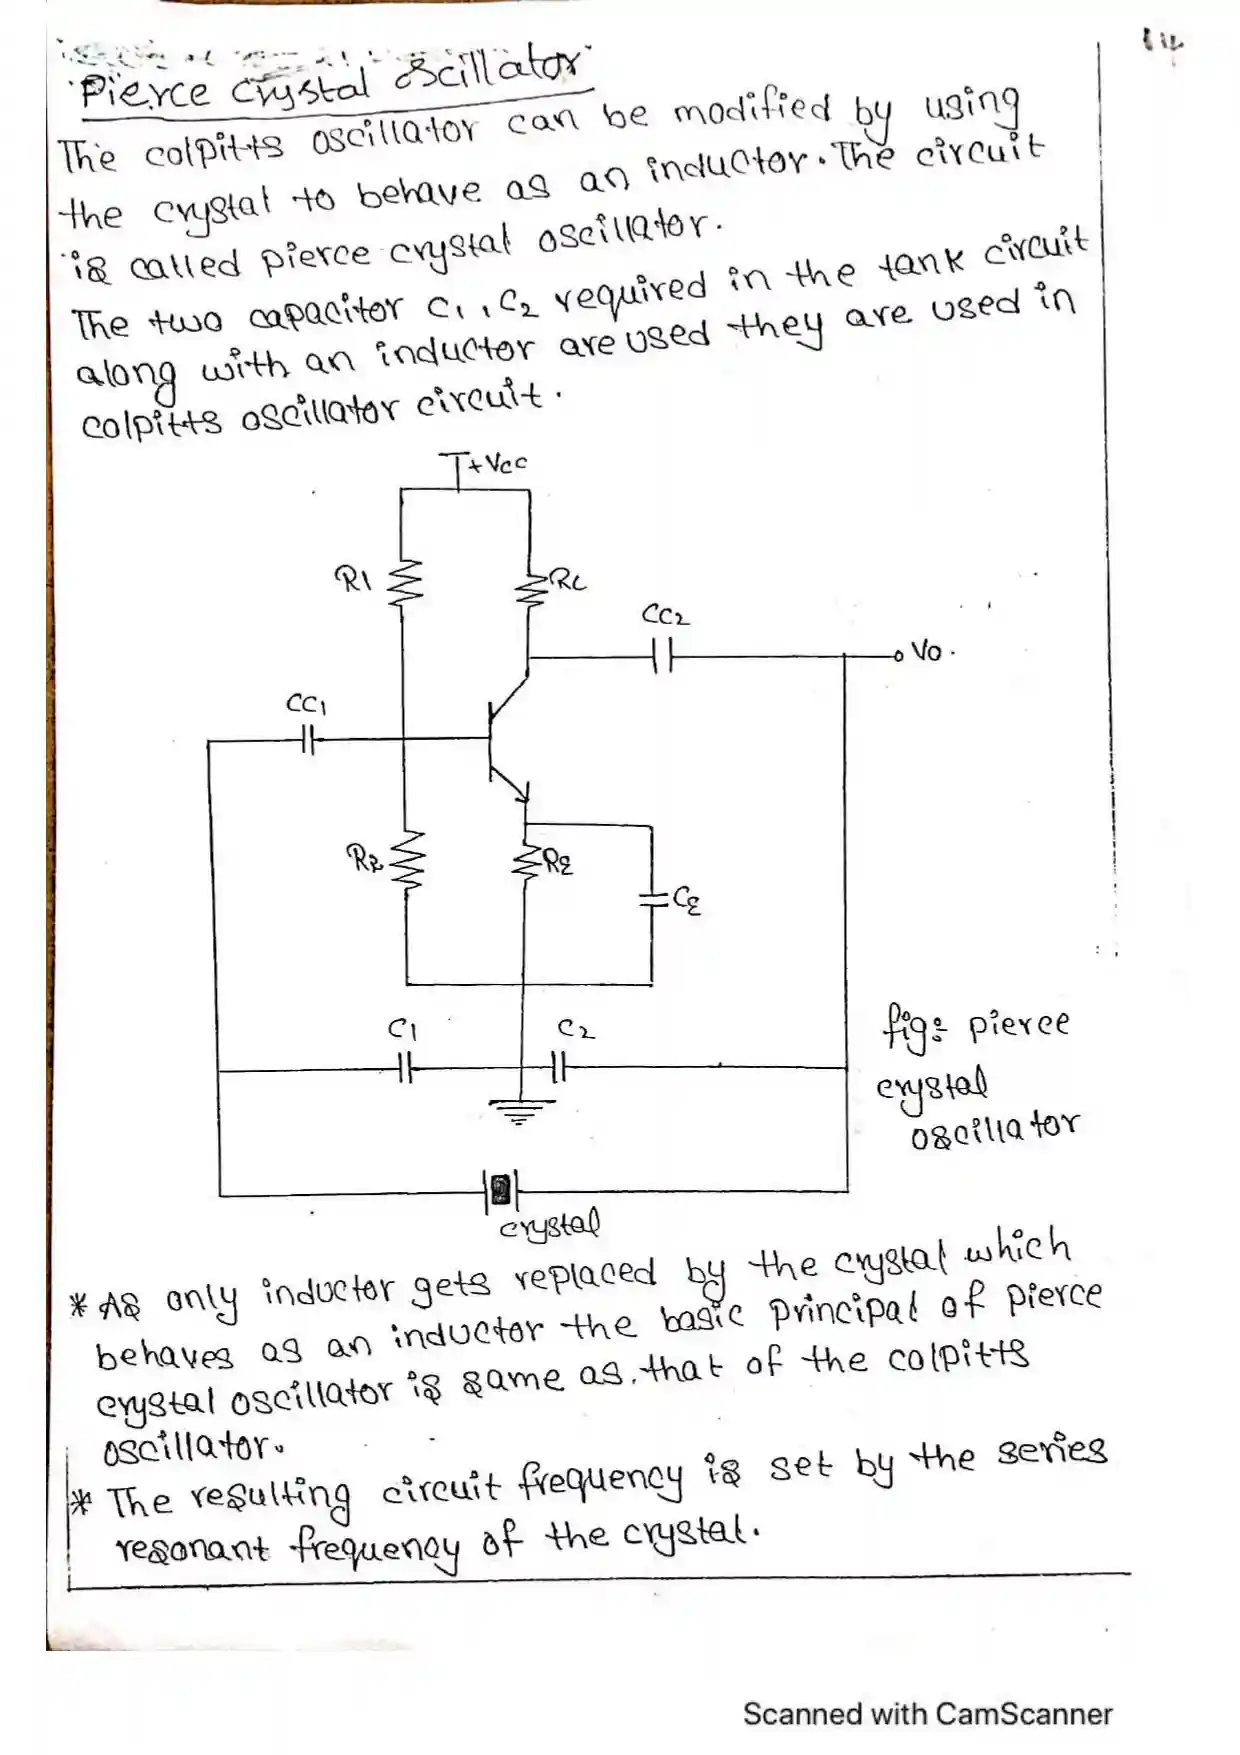 Pierce crystal oscillator
The colpitts oscillator can be modified by using
the crystal to behave as an inductor. The circuit
is called pierce crystal oscillator.
The two capacitor C1, C2 required in the tank circuit
along with an inductor are used they are used in
colpitts oscillator circuit.
+Vcc
R1
RC
CC2
Vo.
CC1
R2
RE
CE
C1
C2
fig: pierce
crystal
oscillator
crystal
* As only inductor gets replaced by the crystal which
behaves as an inductor the basic principal of pierce
crystal oscillator is same as. that of the colpitts
oscillator.
* The resulting circuit frequency is set by the series
resonant frequency of the crystal.
Scanned with CamScanner